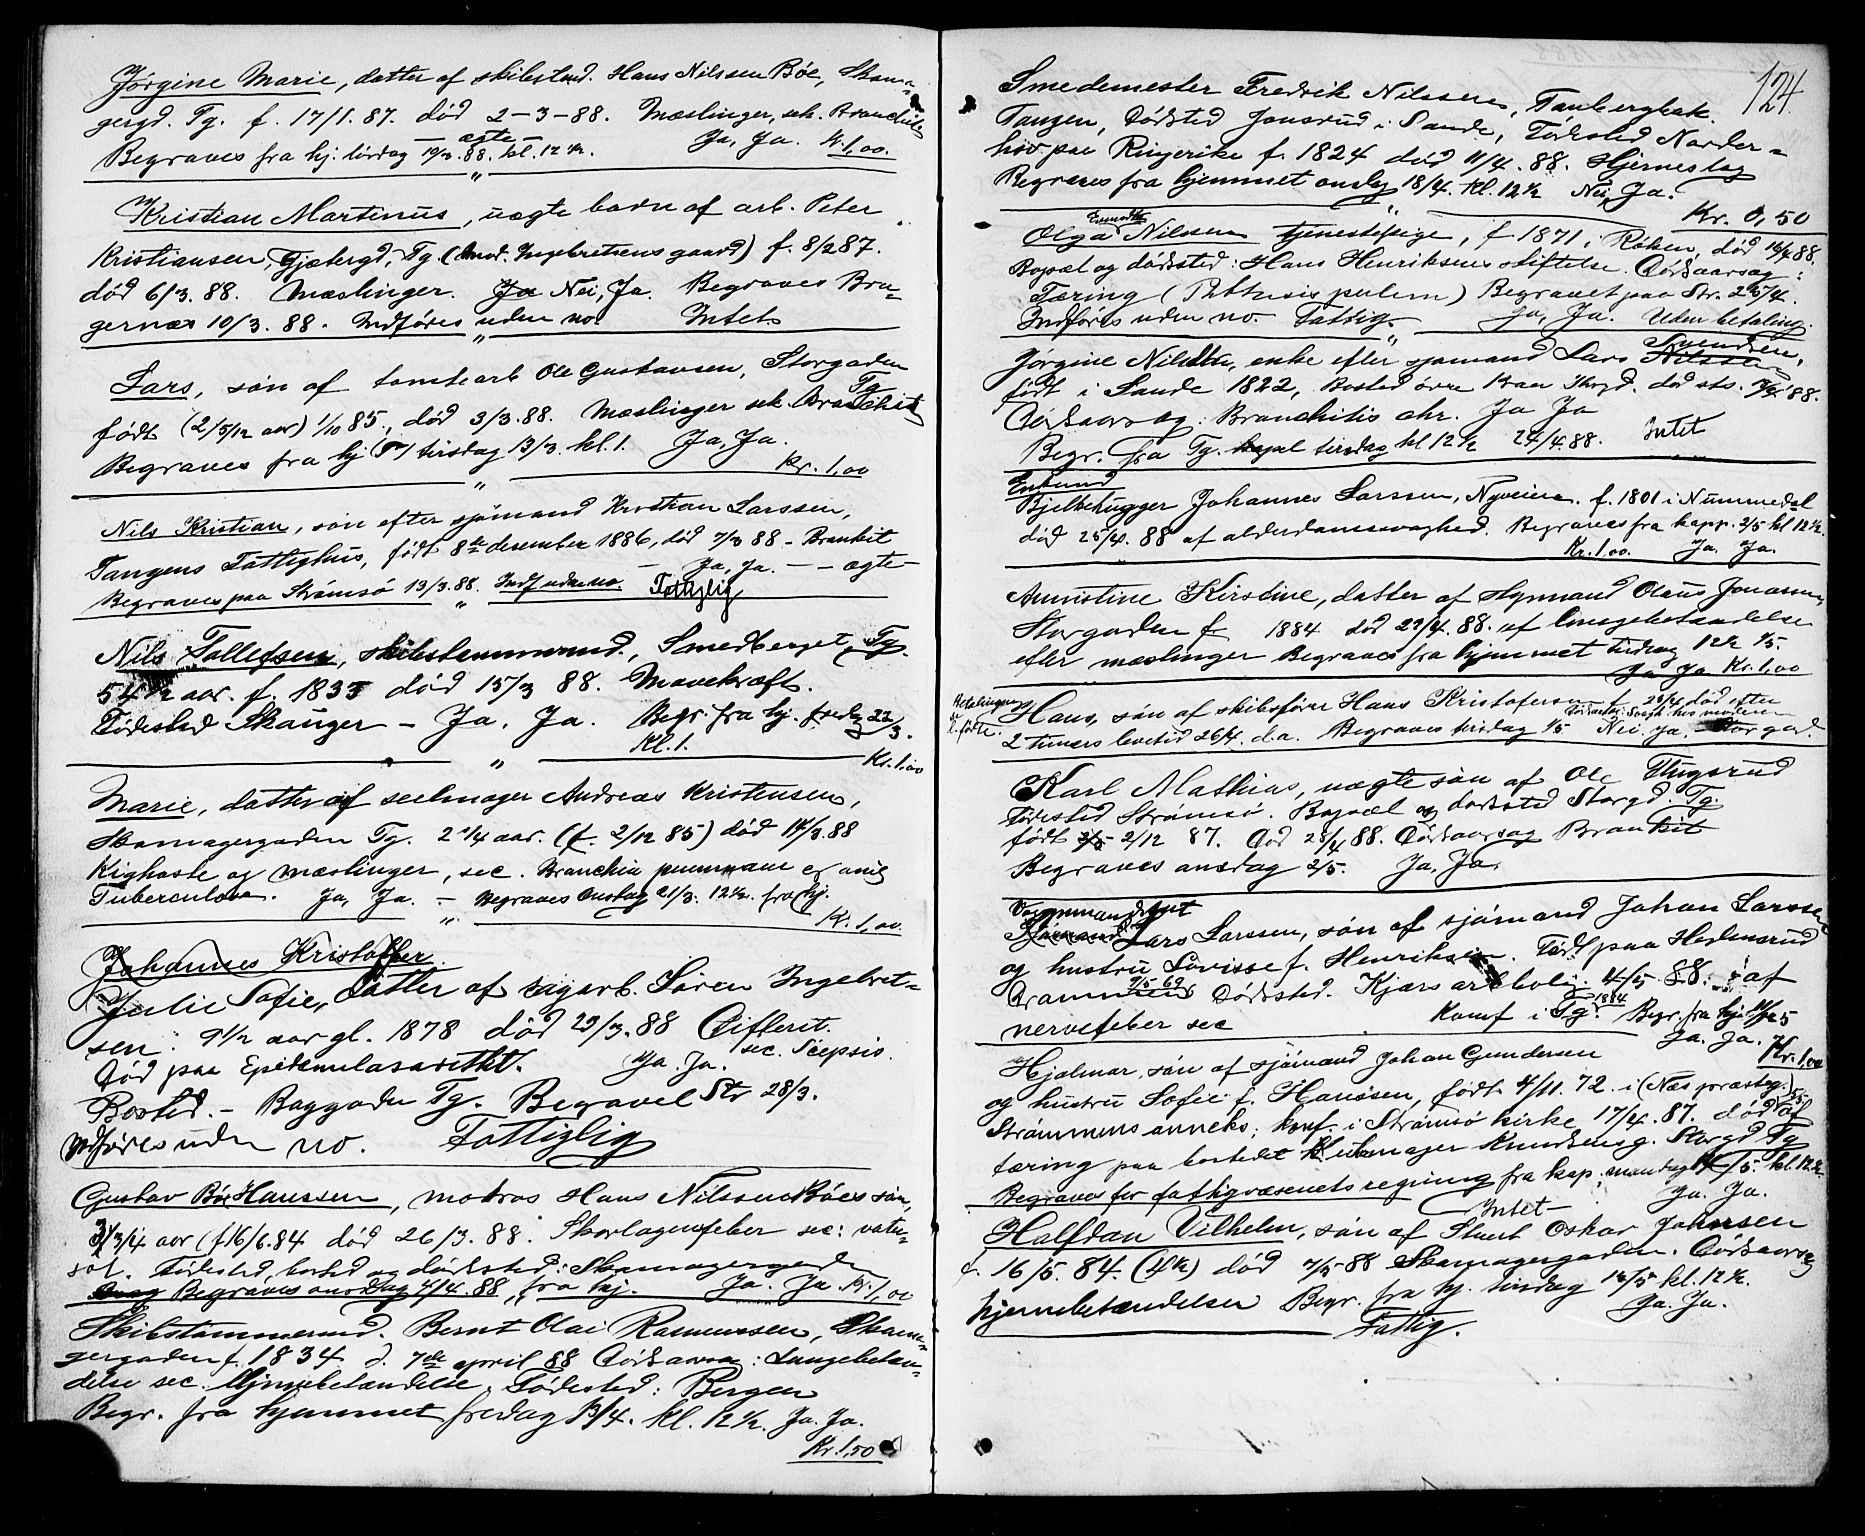 Jørgine Marie, datter af skibstmd. Hans Nilssen Bøe, Skoma-
gergd. Tg. f. 17/1.87. død 2-3-88. Mæslinger, sek. Bronchit
— ægte —
Begraves fra hj. lørdag 10/3.88. kl. 12½. Ja, Ja. Kr. 1,00.
Kristian Martinus, uægte barn af arb. Peter
Kristiansen, Tg. Ingebretsens gaard) f. 8/2 87.
død 6/3.88. Mæslinger. Ja Nei, Ja. Begraves Bra-
gernæs 10/3.88. Indføres uden no. Intet.
Lars, søn af tomtearb Ole Gustavsen, Storgaden
Tg.
født (2/5/12 aar) 1/10 85., død 3/3.88. Mæslinger sek. Bronchit
Begraves fra hj tirsdag 13/3. kl. 1. Ja, Ja.
Kr. 1,00
Nils Kristian, søn efter sjömand Kristian Larssen,
Tangens Fattighus, født 8de desember 1886, død 7/3 88 - Bronkit
— Ja, Ja. — — ægte —
Begraves paa Strömsö 13/3.88. Indf uden no. Fattiglig
Nils Tollefsen, skibstømmermd., Smedberget, Tg
54½ aar. f. 1833 død 15/3 88. Mavekræft.
Fødested Skauger — Ja, Ja. Begr. fra hj. fredag 23/3.
Kl. 1.
Kr. 1,00
Marie, datter af seilmager Andreas Kristensen,
Skomagergaden Tg. 2¼ aar. (f. 2/12 85) død 14/3.88
Kighoste og mæslinger, sec. Bronchia pneumonie og
Tuberculose. Ja, Ja. — Begraves Onsdag 21/3. 12½. fra hj.
Kr. 1,00.
Johannes Kristoffer.
Julie Sofie, datter af Sören Ingebret-
sen. 9½ aar gl. 1878 død 23/3.88 Difterit.
sec. Scepsis.
Død paa Epidemilasarettet. Ja. Ja.
Bosted. - Baggaden Tg. Begravet Str 28/3.
Indføres uden no. Fattiglig
Gustav Bøe Hanssen, matros Hans Nilssen Bøes søn,
3 3/4 aar (f 16/6.84 død 26/3.88. Skarlagensfeber sec: vatu-
sot. Fødested, bosted og dødssted: Skomagergaden
Begraves onsdag 4/4.88, fra hj. Ja. Ja. Kr. 1,00
Skibstømmermd. Bernt Olai Rasmussen, Skoma-
gergaden f. 1834 d. 7de april 88 Dødsaarsag: Lungebetæn-
delse sec. Hjernebetændelse. Fødested: Bergen
Begr. fra hjemmet fredag 13/4. kl. 12½. Ja. Ja.
Kr. 1,50
124
Smedemester Fredrik Nilssen, Taubergbak.
Tangen, Dödsted Jonsrud i Sande, Födested Norder-
hov paa Ringerike f. 1824 död 11/4.88. Hjerneslag
Begraves fra hjemmet onsdag 18/4. Kl. 12½ Nei, Ja.
Kr. 0,50
Olga Nilssen tjenestepige, f 1871 i Röken, død 19/4 88.
Bopæl og dødssted: Hans Henriksens stiftelse. Dödsaarsag:
Tæring (Phthisis pulm) Begravet paa Str. 25/4.
Indføres uden no. Fattig. Ja, Ja. Uden betaling.
Svendsen,
Jørgine enke efter sjømand Lars Nilssen
født i Sande 1822, Bosted øvre død sts. 88.
Dødsaarsag: Bronchitis chr. Ja Ja
Begr. fra Tg. kapel tirsdag kl 12½ 24/4.88. Intet
Enkemd
Bjelkehugger Johannes Larssen, Nyveien. f. 1801 i Nummedal
død 25/4.88 af alderdomssvaghed. Begraves fra kapp. 2/5 kl 12½.
Kr. 1.00. Ja. Ja.
Annistine Kirstine, datter af styrmand Olaus Jonassen,
Storgaden f 1884 død 27/4.88. af lungebetændelse
efter mæslinger Begraves fra hjemmet tirsdag 12½ 1/5.
Ja Ja Kr. 1,00
Hans, søn af skibsfører Hans Kristofersen f. 26/4 død efter
2 timers levetid 26/4. d.a. Begraves tirsdag 1/5 Nei. Ja. Storgad.
Karl Mathias, uægte søn af Ole
Fødested Strömsö. Bopæl og dødssted Storgd. Tg.
født 2/12 87. Død 28/4 88. Dødsaarsag Bronkit
Begraves onsdag 2/5. Ja, Ja.
Lars Larssen, søn af sjömand Johan Larssen
og hustru Lovisse f. Henriksen. Født paa
Drammen 9/5 69 Dødssted. Kjærs arb bolig. 4/5 88. af
nervefeber sec Konf i Tg. 1884 Begr. fra hj.
Ja. Ja. Kr. 1,00
Hjalmar, søn af sjömand Johan Gundersen
og hustru Sofie f. Hanssen, født 4/11.72. i (Næs præsteg.)
Strømmens anneks; konf. i Strømsø kirke 17/4.87. død af
tæring paa bostedet Knudsensg. Storgd Tg
Begraves for fattigvæsenets regning fra kap. mandag 14/5. kl. 12½.
— Intet — Ja. Ja.
Halfdan Vilhelm, søn af Stuert Oskar Johnsen
f. 16/5.84. (4½) død 7/5 88 Skomagergaden. Dødsaarsag
hjernebetændelse Begr. fra hj. tirsdag 15/5 kl. 12½.
Fattig. Ja. Ja.